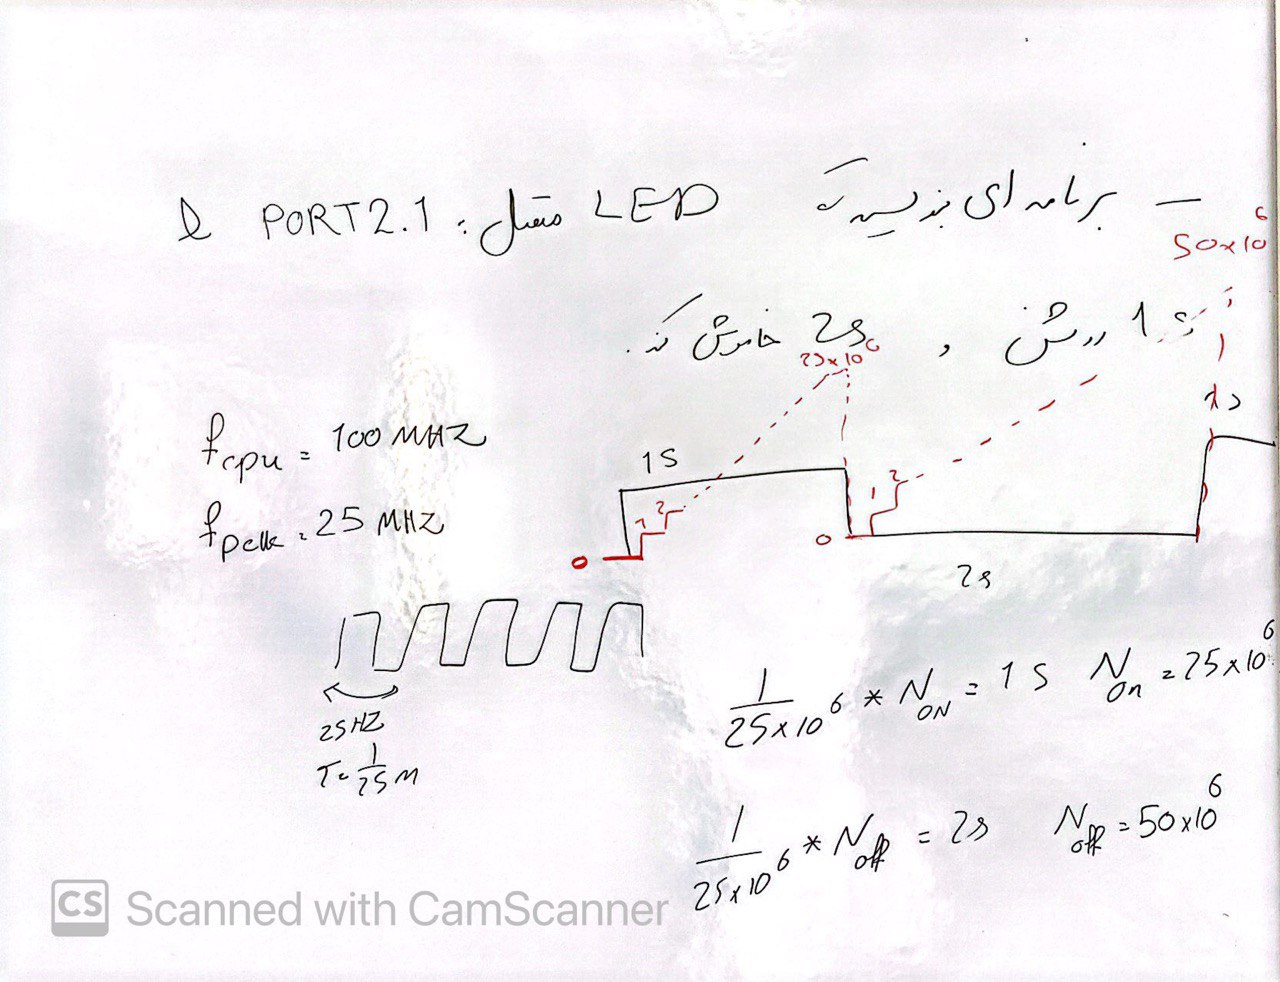 — برنامه ای بنویسید که LED متصل به PORT2.1 را
1s روشن و 2s خاموش کند.
50x10^6
25x10^6
fcpu = 100 MHZ
fpclk = 25 MHZ
1S
1s
0 1 2
0 1 2
2s
25HZ
T = 1/25M
1/25x10^6 * N_ON = 1 S N_On = 25x10^6
1/25x10^6 * N_off = 2s N_off = 50x10^6
CS Scanned with CamScanner